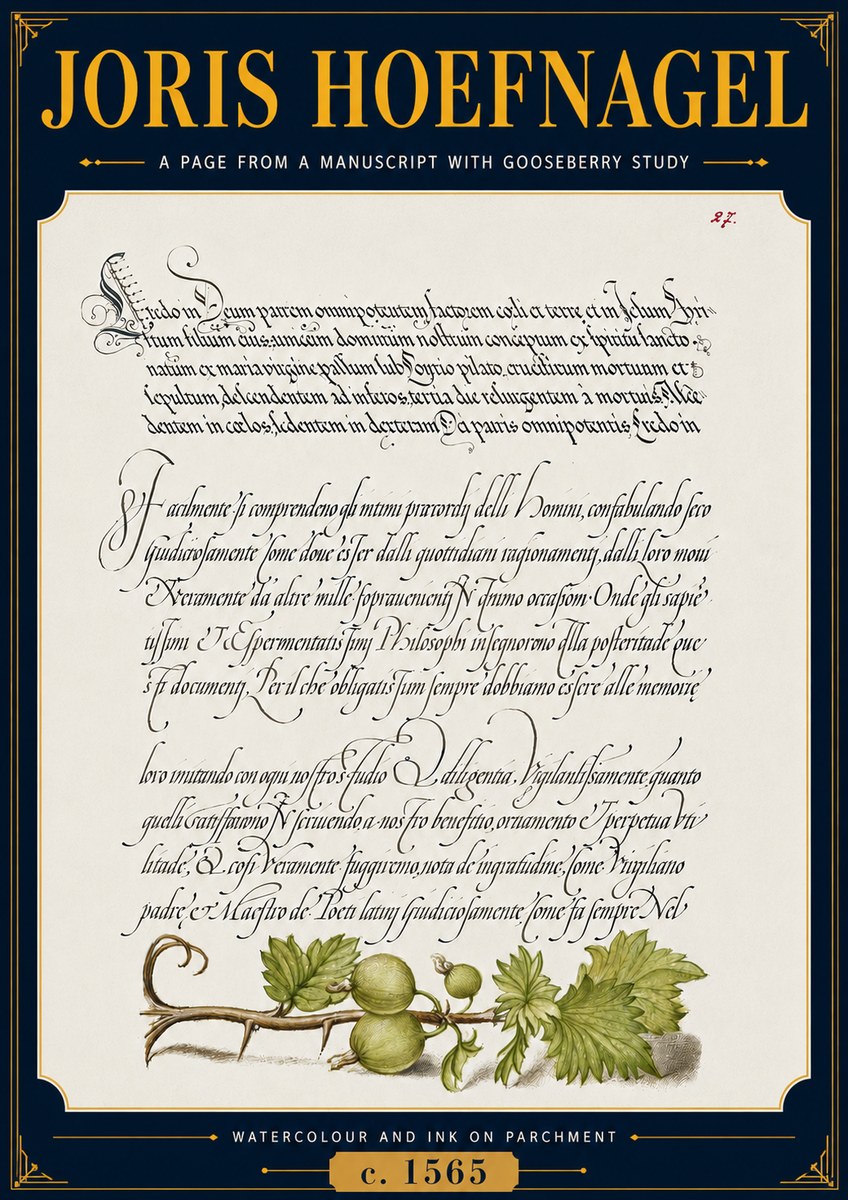 JORIS HOEFNAGEL
A PAGE FROM A MANUSCRIPT WITH GOOSEBERRY STUDY
27.
Credo in Deum patrem omnipotentem factorem coeli et terre et in Jesum Chri
stum filium eius unicum dominum nostrum conceptum ex spiritu sancto
natum ex maria virgine passum sub Pontio pilato, crucifixum mortuum et
sepultum, descendentem ad inferos, tertia die resurgentem à mortuis. Ascen
dentem in coelos, sedentem in dexteram Dei patris omnipotentis, Credo in
Facilmente si comprendeno gli intimi præcordij delli Homini, confabulando seco
Giudiciosamente Come doue esser dalli quottidiani ragionamentj, dalli loro moui
Veramente da altre mille soprauenientj occasiom. Onde gli sapie
tissimi Et Espermentatissimj Philosophi insegnoreno alla posteritade que
sti documentj, Per il che obligatissimi sempre dobbiamo essere alle memorie
loro imitando con ogni nostro studio & diligentia, Vigilantissamente, quanto
quelli satisffaraono JN scriuendo, a nostro benefitio, ornamento & perpetua Vti
litade, & cosi Veramente fuggiremo, nota de ingratudine, Come Virgiliano
padre, et Maestro de Poeti latinj Giudiciosamente Come fa sempre Nel
WATERCOLOUR AND INK ON PARCHMENT
c. 1565